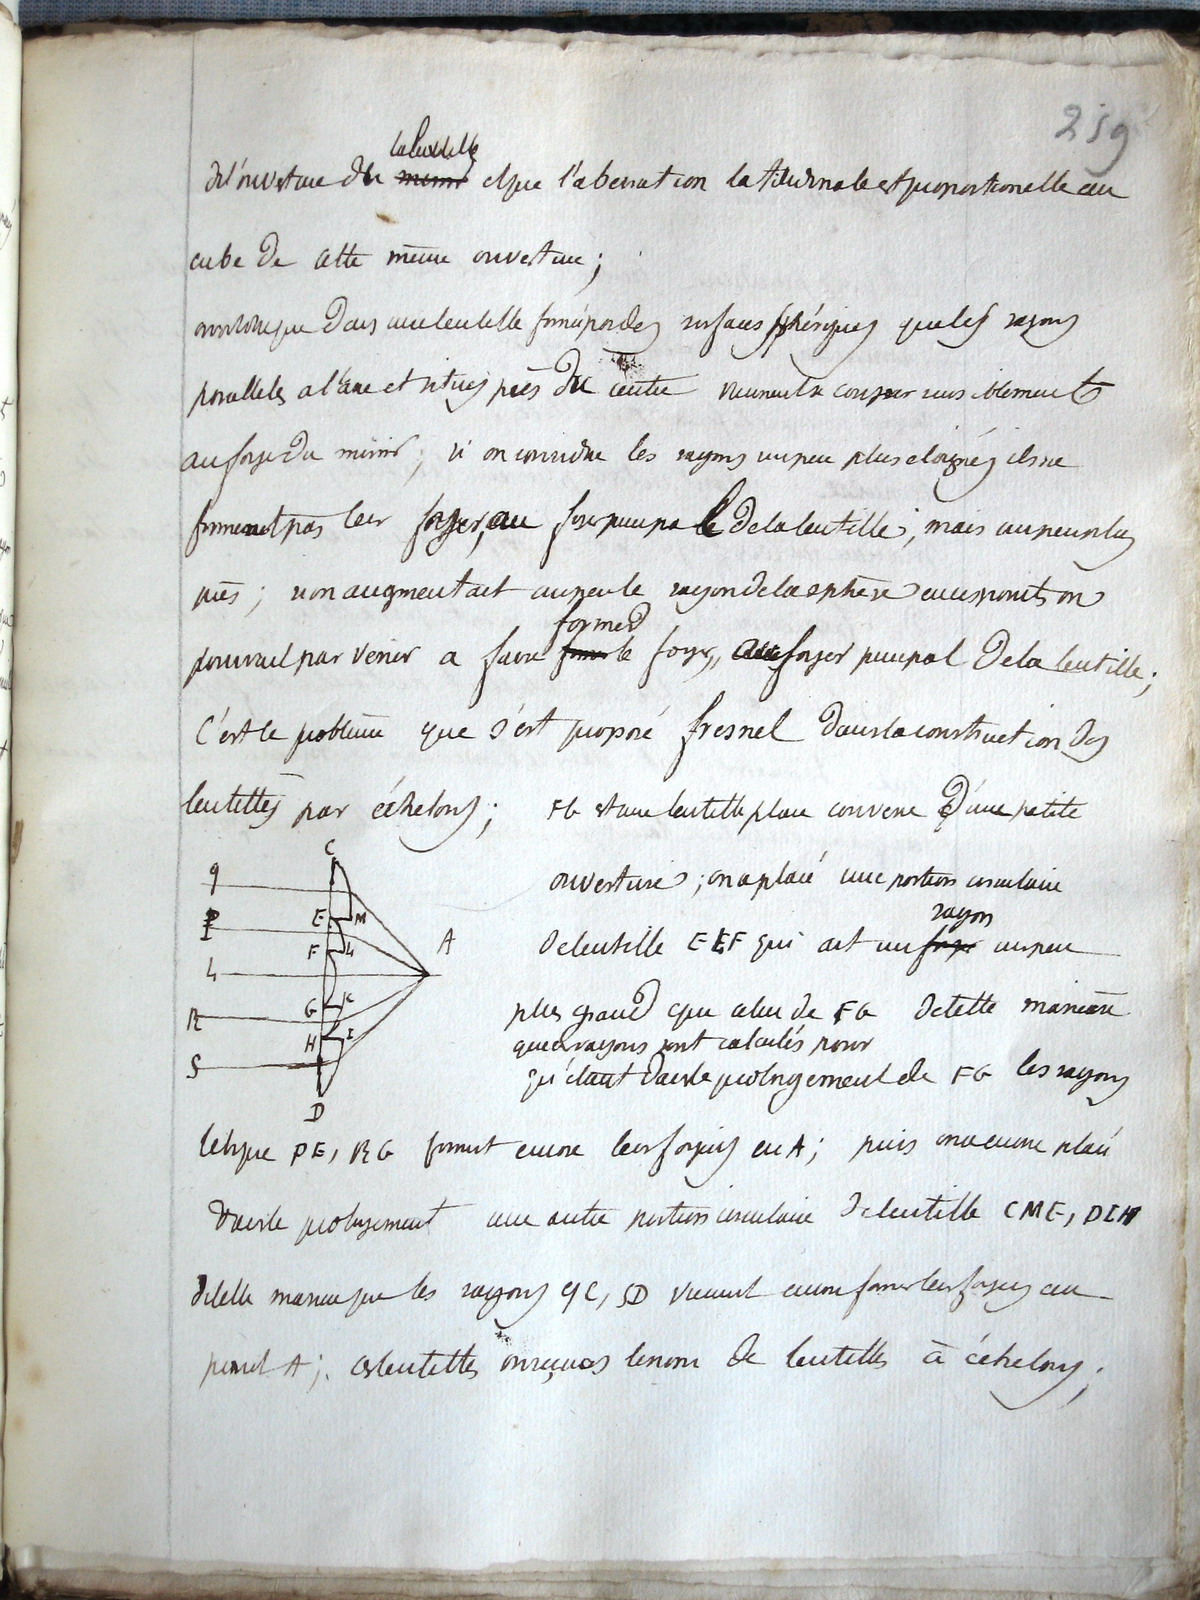 259
la lentille
de l'ouverture de miroir et que l'aberration latitudinale est proportionelle au
cube de cette même ouverture;
on voit que dans une lentille formé par des surfaces sphériques que les rayons
paralleles a l'axe et situés près du centre viennent se couper sensiblement
au foyer du miroir; si on considere les rayons un peu plus eloignés ils ne
forment pas leur foyer, au foyer principale de la lentille; mais un peu plus
près; si on augmentait un peu le rayon de la sphère en ces points on
former
pourrait parvenir a faire former le foyer, au foyer principal de la lentille;
C'est le problème que s'est proposé fresnel dans la construction des
lentilles par échelons; FG est une lentille plane convexe d'une petite
C
q
ouverture; on a placé une portion circulaire
E M
P
rayon
F L
A
de lentille ELF qui ait un foyer un peu
L
G K
plus grand que celui de FG de telle manière
R
que ces rayons sont calculés pour
H I
S
qu'étant dans le prolongement de FG les rayons
D
tels que PE, RG forment encore leurs foyers en A; puis on a encore placé
dans le prolongement une autre portion circulaire de lentille CME, DIH
de telle maniere que les rayons qC, SD viennent encore former leurs foyers au
point A; ces lentilles ont reçues le nom de lentilles à échelons;